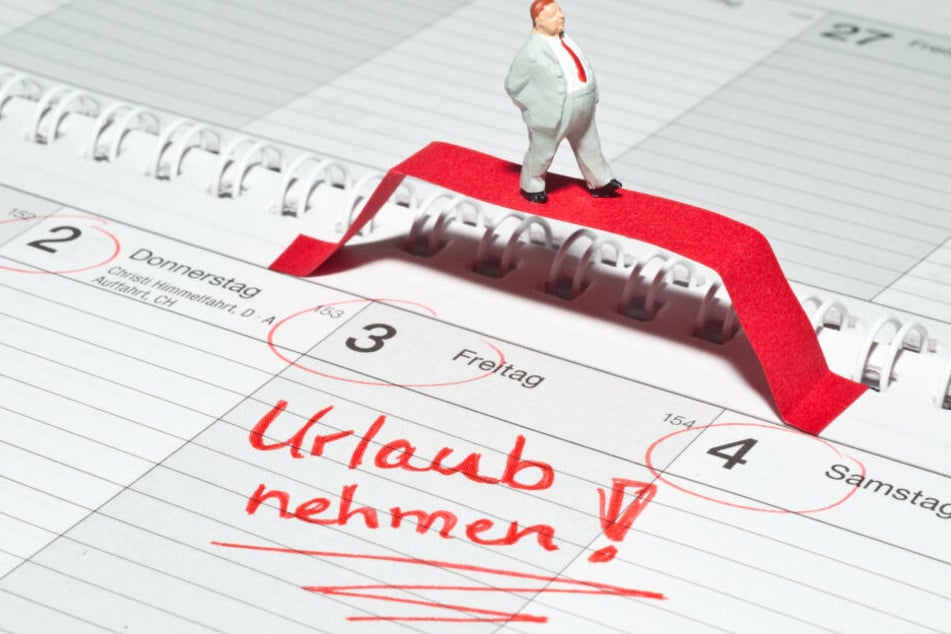 27
152
2 Donnerstag
Christi Himmelfahrt, D · A
Auffahrt, CH
153
3 Freitag
154
4 Samstag
Urlaub
nehmen!